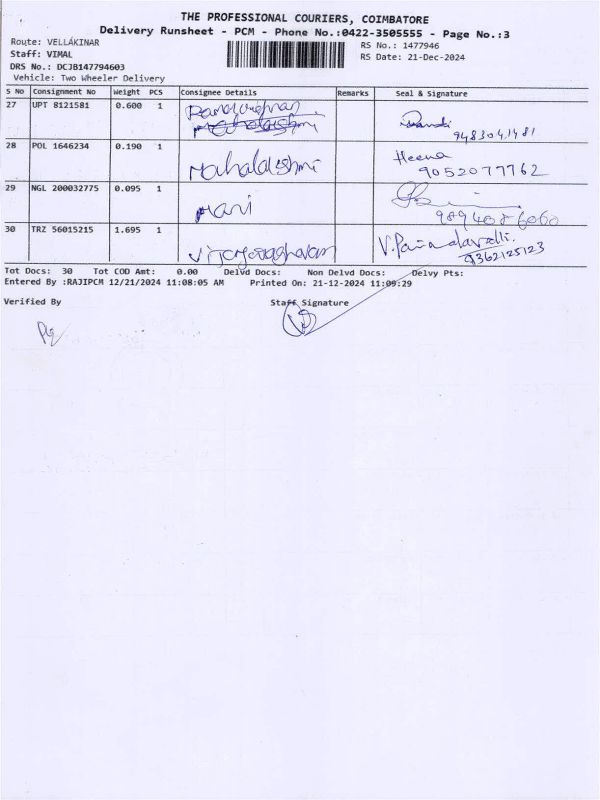 THE PROFESSIONAL COURIERS, COIMBATORE
Delivery Runsheet - PCM - Phone No.:0422-3505555 - Page No.:3
Route: VELLAKINAR
RS No.: 1477946
Staff: VIMAL
RS Date: 21-Dec-2024
DRS No.: DCJB147794603
Vehicle: Two Wheeler Delivery
S No Consignment No Weight PCS Consignee Details Remarks Seal & Signature
27 UPT 8121581 0.600 1
28 POL 1646234 0.190 1 Mahalakshmi Heena
9052077762
29 NGL 200032775 0.095 1 Mani
9894086060
30 TRZ 56015215 1.695 1 Vijayaraghavan
9362125123
Tot Docs: 30 Tot COD Amt: 0.00 Delvd Docs: Non Delvd Docs: Delvy Pts:
Entered By :RAJIPCM 12/21/2024 11:08:05 AM Printed On: 21-12-2024 11:09:29
Verified By Staff Signature